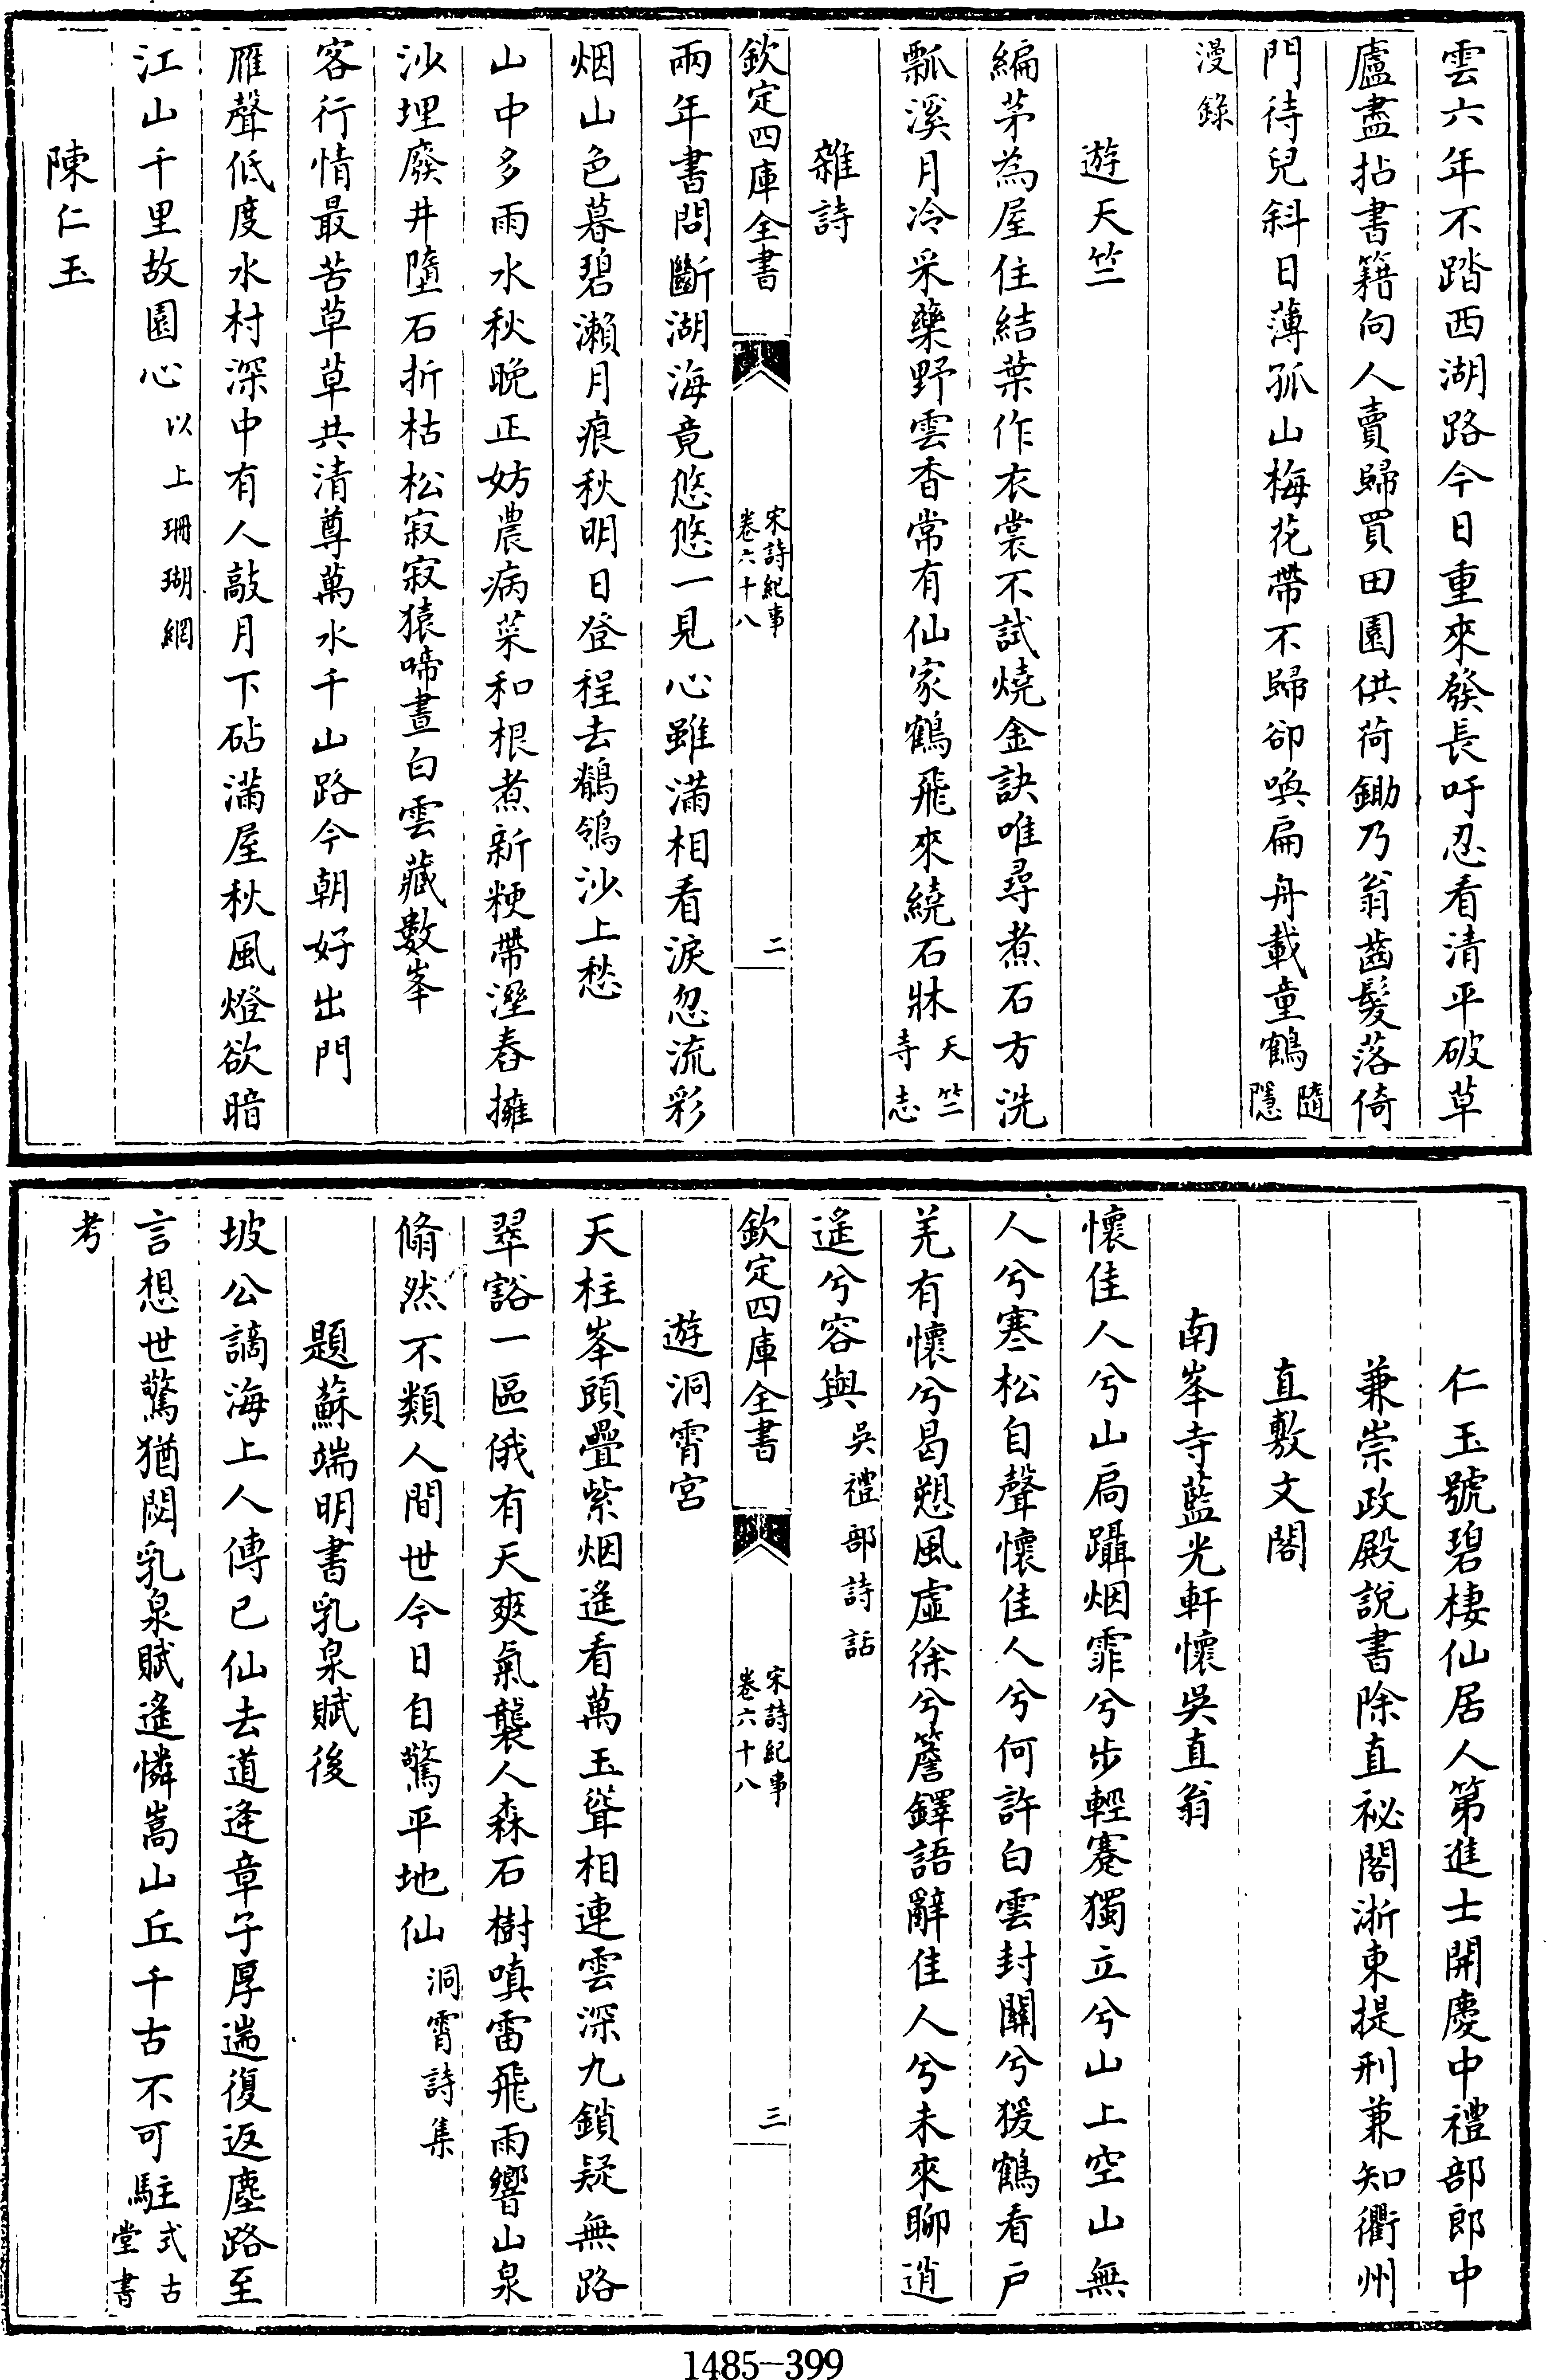 雲六年不踏西湖路今日重來發長吁忍看清平破草
廬盡拈書籍向人賣歸買田園供荷鋤乃翁齒髮落倚
門待兒斜日薄孤山梅花帶不歸卻喚扁舟載童鶴隨隱
漫錄
遊天竺
編茅為屋住結葉作衣裳不試燒金訣唯尋煮石方洗
瓢溪月冷采藥野雲香常有仙家鶴飛來繞石牀天竺寺志
雜詩
欽定四庫全書
宋詩紀事
卷六十八
二
兩年書問斷湖海竟悠悠一見心雖滿相看淚忽流彩
烟山色暮碧瀨月痕秋明日登程去鶺鴒沙上愁
山中多雨水秋晚正妨農病菜和根煮新粳帶溼舂擁
沙埋廢井墮石折枯松寂寂猿啼晝白雲藏數峯
客行情最苦草草共清尊萬水千山路今朝好出門
雁聲低度水村深中有人敲月下砧滿屋秋風燈欲暗
江山千里故園心以上珊瑚網
陳仁玉
仁玉號碧棲仙居人第進士開慶中禮部郎中
兼崇政殿說書除直祕閣浙東提刑兼知衢州
直敷文閣
南峯寺藍光軒懷吳直翁
懷佳人兮山扃躡烟霏兮步輕蹇獨立兮山上空山無
人兮寒松自聲懷佳人兮何許白雲封關兮猨鶴看戶
羌有懷兮曷愬風虛徐兮簷鐸語辭佳人兮未來聊逍
遥兮容與吳禮部詩話
欽定四庫全書
宋詩紀事
卷六十八
三
遊洞霄宮
天柱峯頭疊紫烟遥看萬玉聳相連雲深九鎖疑無路
翠豁一區俄有天爽氣襲人森石樹嗔雷飛雨響山泉
翛然不類人間世今日自驚平地仙洞霄詩集
題蘇端明書乳泉賦後
坡公謫海上人傳已仙去道逢章子厚遄復返塵路至
言想世驚猶閟乳泉賦遥憐嵩山丘千古不可駐式古堂書
考
1485-399